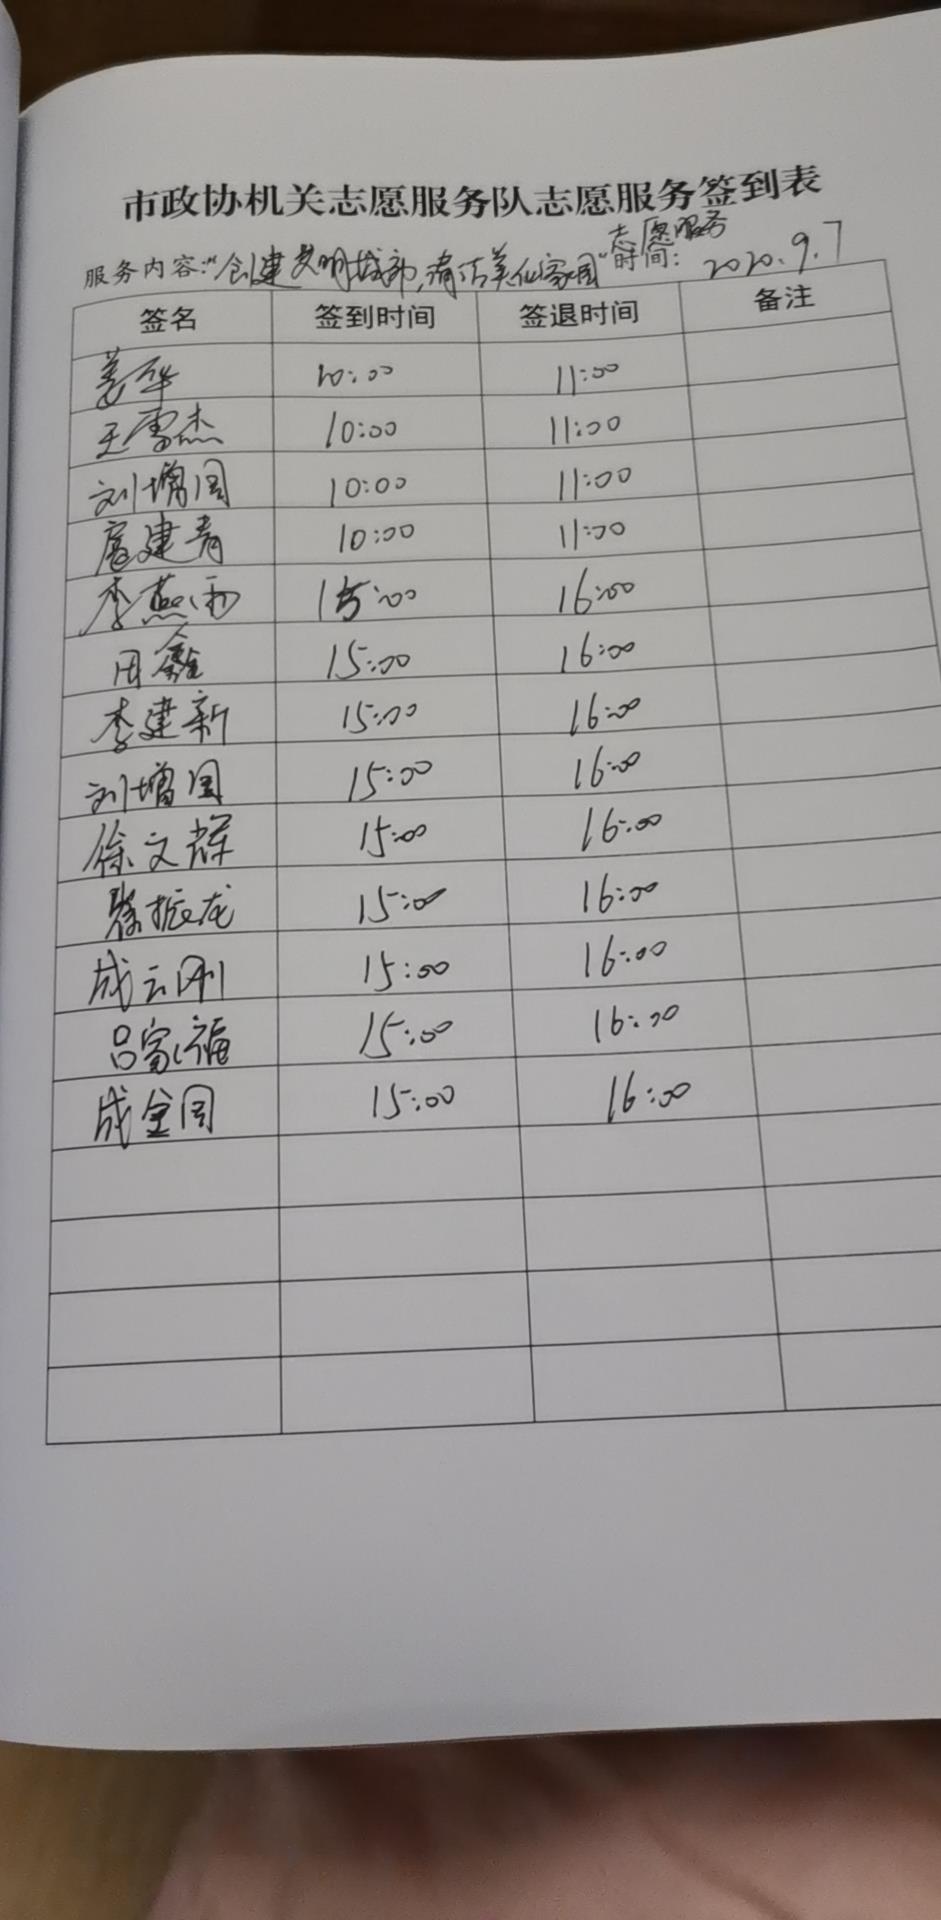 市政协机关志愿服务队志愿服务签到表
服务内容:"创建文明城市,清洁美化家园"志愿服务 时间: 2020.9.7
签名 签到时间 签退时间 备注
姜华 10:00 11:00
王雪杰 10:00 11:00
刘增国 10:00 11:00
扈建青 10:00 11:00
李燕雨 15:00 16:00
田鑫 15:00 16:00
李建新 15:00 16:00
刘增国 15:00 16:00
徐文辉 15:00 16:00
振龙 15:00 16:00
成云刚 15:00 16:00
吕家福 15:00 16:00
成金国 15:00 16:00